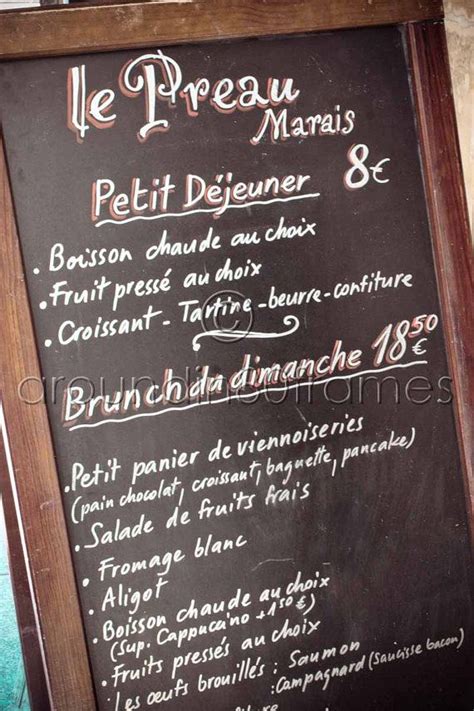 le Preau
Marais
Petit Déjeuner 8€
. Boisson chaude au choix
. Fruit pressé au choix
. Croissant - Tartine - beurre - confiture
©
Brunch du dimanche 18⁵⁰ €
. Petit panier de viennoiseries
(pain chocolat, croissant, baguette, pancake)
. Salade de fruits frais
. Fromage blanc
. Aligot
. Boisson chaude au choix
(Sup. Cappuccino +1.50€)
. Fruits pressés au choix
. Les œufs brouillés : Saumon
: Campagnard (Saucisse bacon)